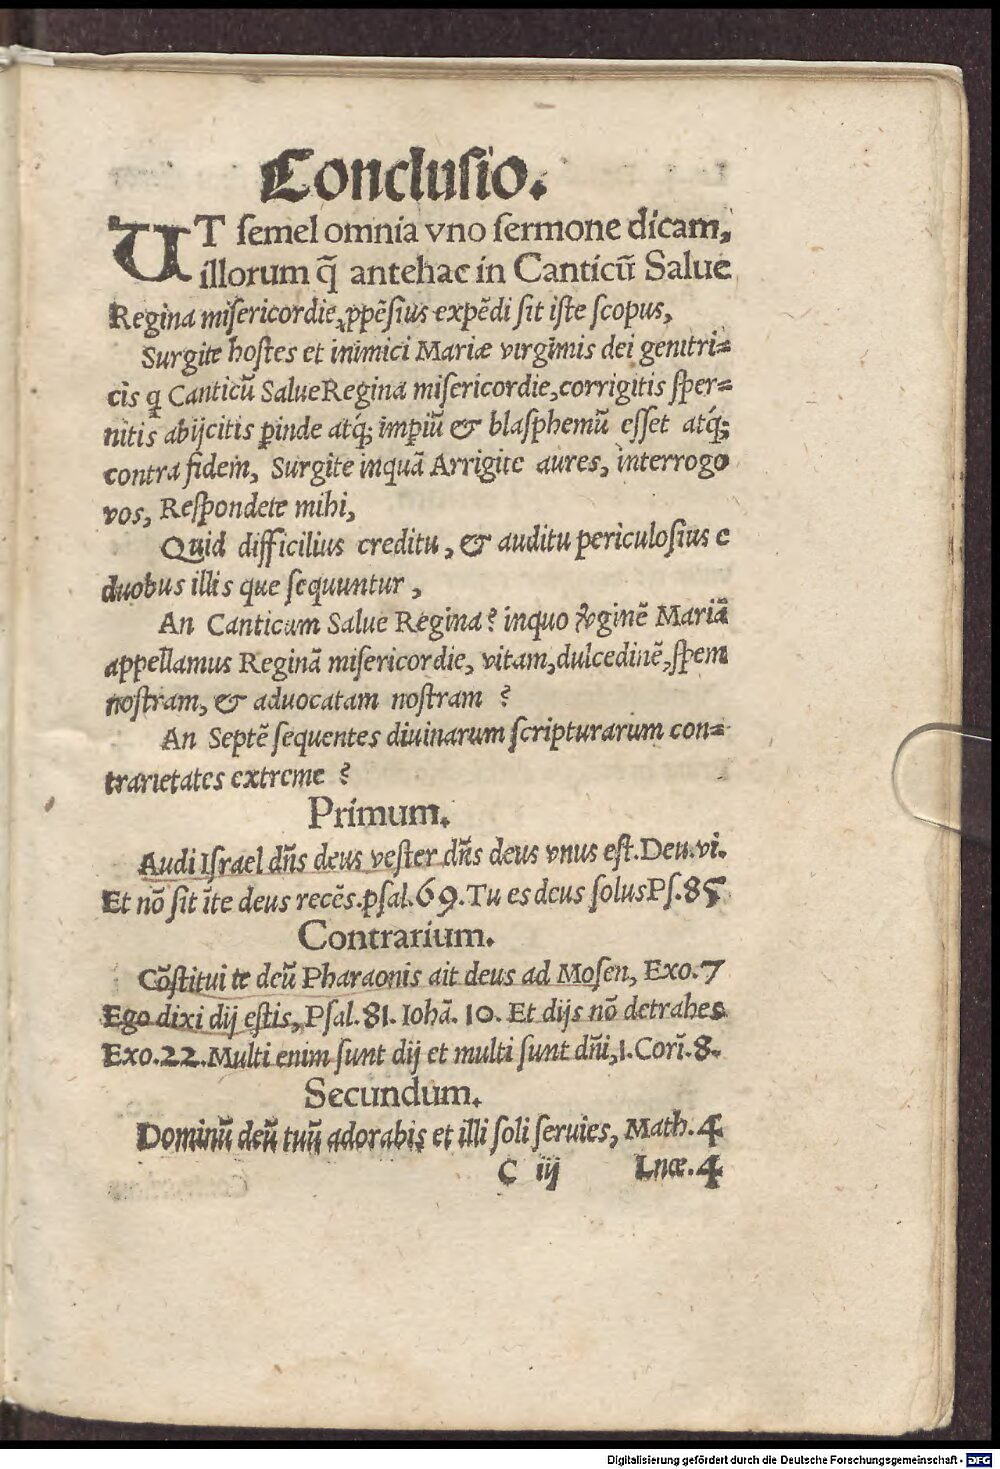 Conclusio.
UT semel omnia vno sermone dicam,
illorum q̃ antehac in Canticũ Salue
Regina misericordie, ꝓpẽsius expẽdi sit iste scopus,
Surgite hostes et inimici Mariæ virginis dei genitri=
cis q Canticũ Salue Regina misericordie, corrigitis sper=
nitis abijcitis ꝑinde atq́; impiũ & blasphemũ esset atq́;
contra fidem, Surgite inquã Arrigite aures, interrogo
vos, Respondete mihi,
Quid difficilius creditu, & auditu periculosius e
duobus illis que sequuntur,
An Canticum Salue Regina? inquo Mariã
appellamus Reginã misericordie, vitam, dulcedinẽ, spem
nostram, & aduocatam nostram ?
An Septẽ sequentes diuinarum scripturarum con=
trarietates extreme ?
Primum.
Audi Israel dñs deus vester dñs deus vnus est. Deu. vi.
Et nõ sit ĩte deus recẽs. psal. 69. Tu es deus solus Ps. 85
Contrarium.
Cõstitui te deũ Pharaonis ait deus ad Mosen, Exo. 7
Ego dixi dij estis, Psal. 81. Iohã. 10. Et dijs nõ detrahes
Exo. 22. Multi enim sunt dij et multi sunt dñi, 1. Corĩ. 8.
Secundum.
Dominũ deũ tuũ adorabis et illi soli seruies, Math. 4
C iij Lucæ. 4
Digitalisierung gefördert durch die Deutsche Forschungsgemeinschaft - DFG